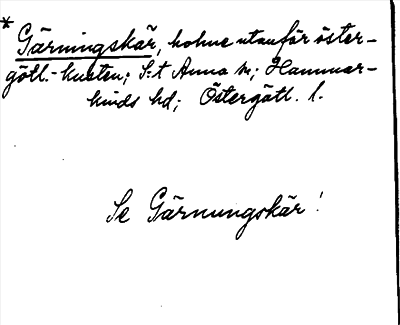 * Gärningskär, holme utanför öster-
götl.-kusten; S:t Anna sn; Hammar-
kinds hd; Östergötl. l.
Se Gärnungskär!